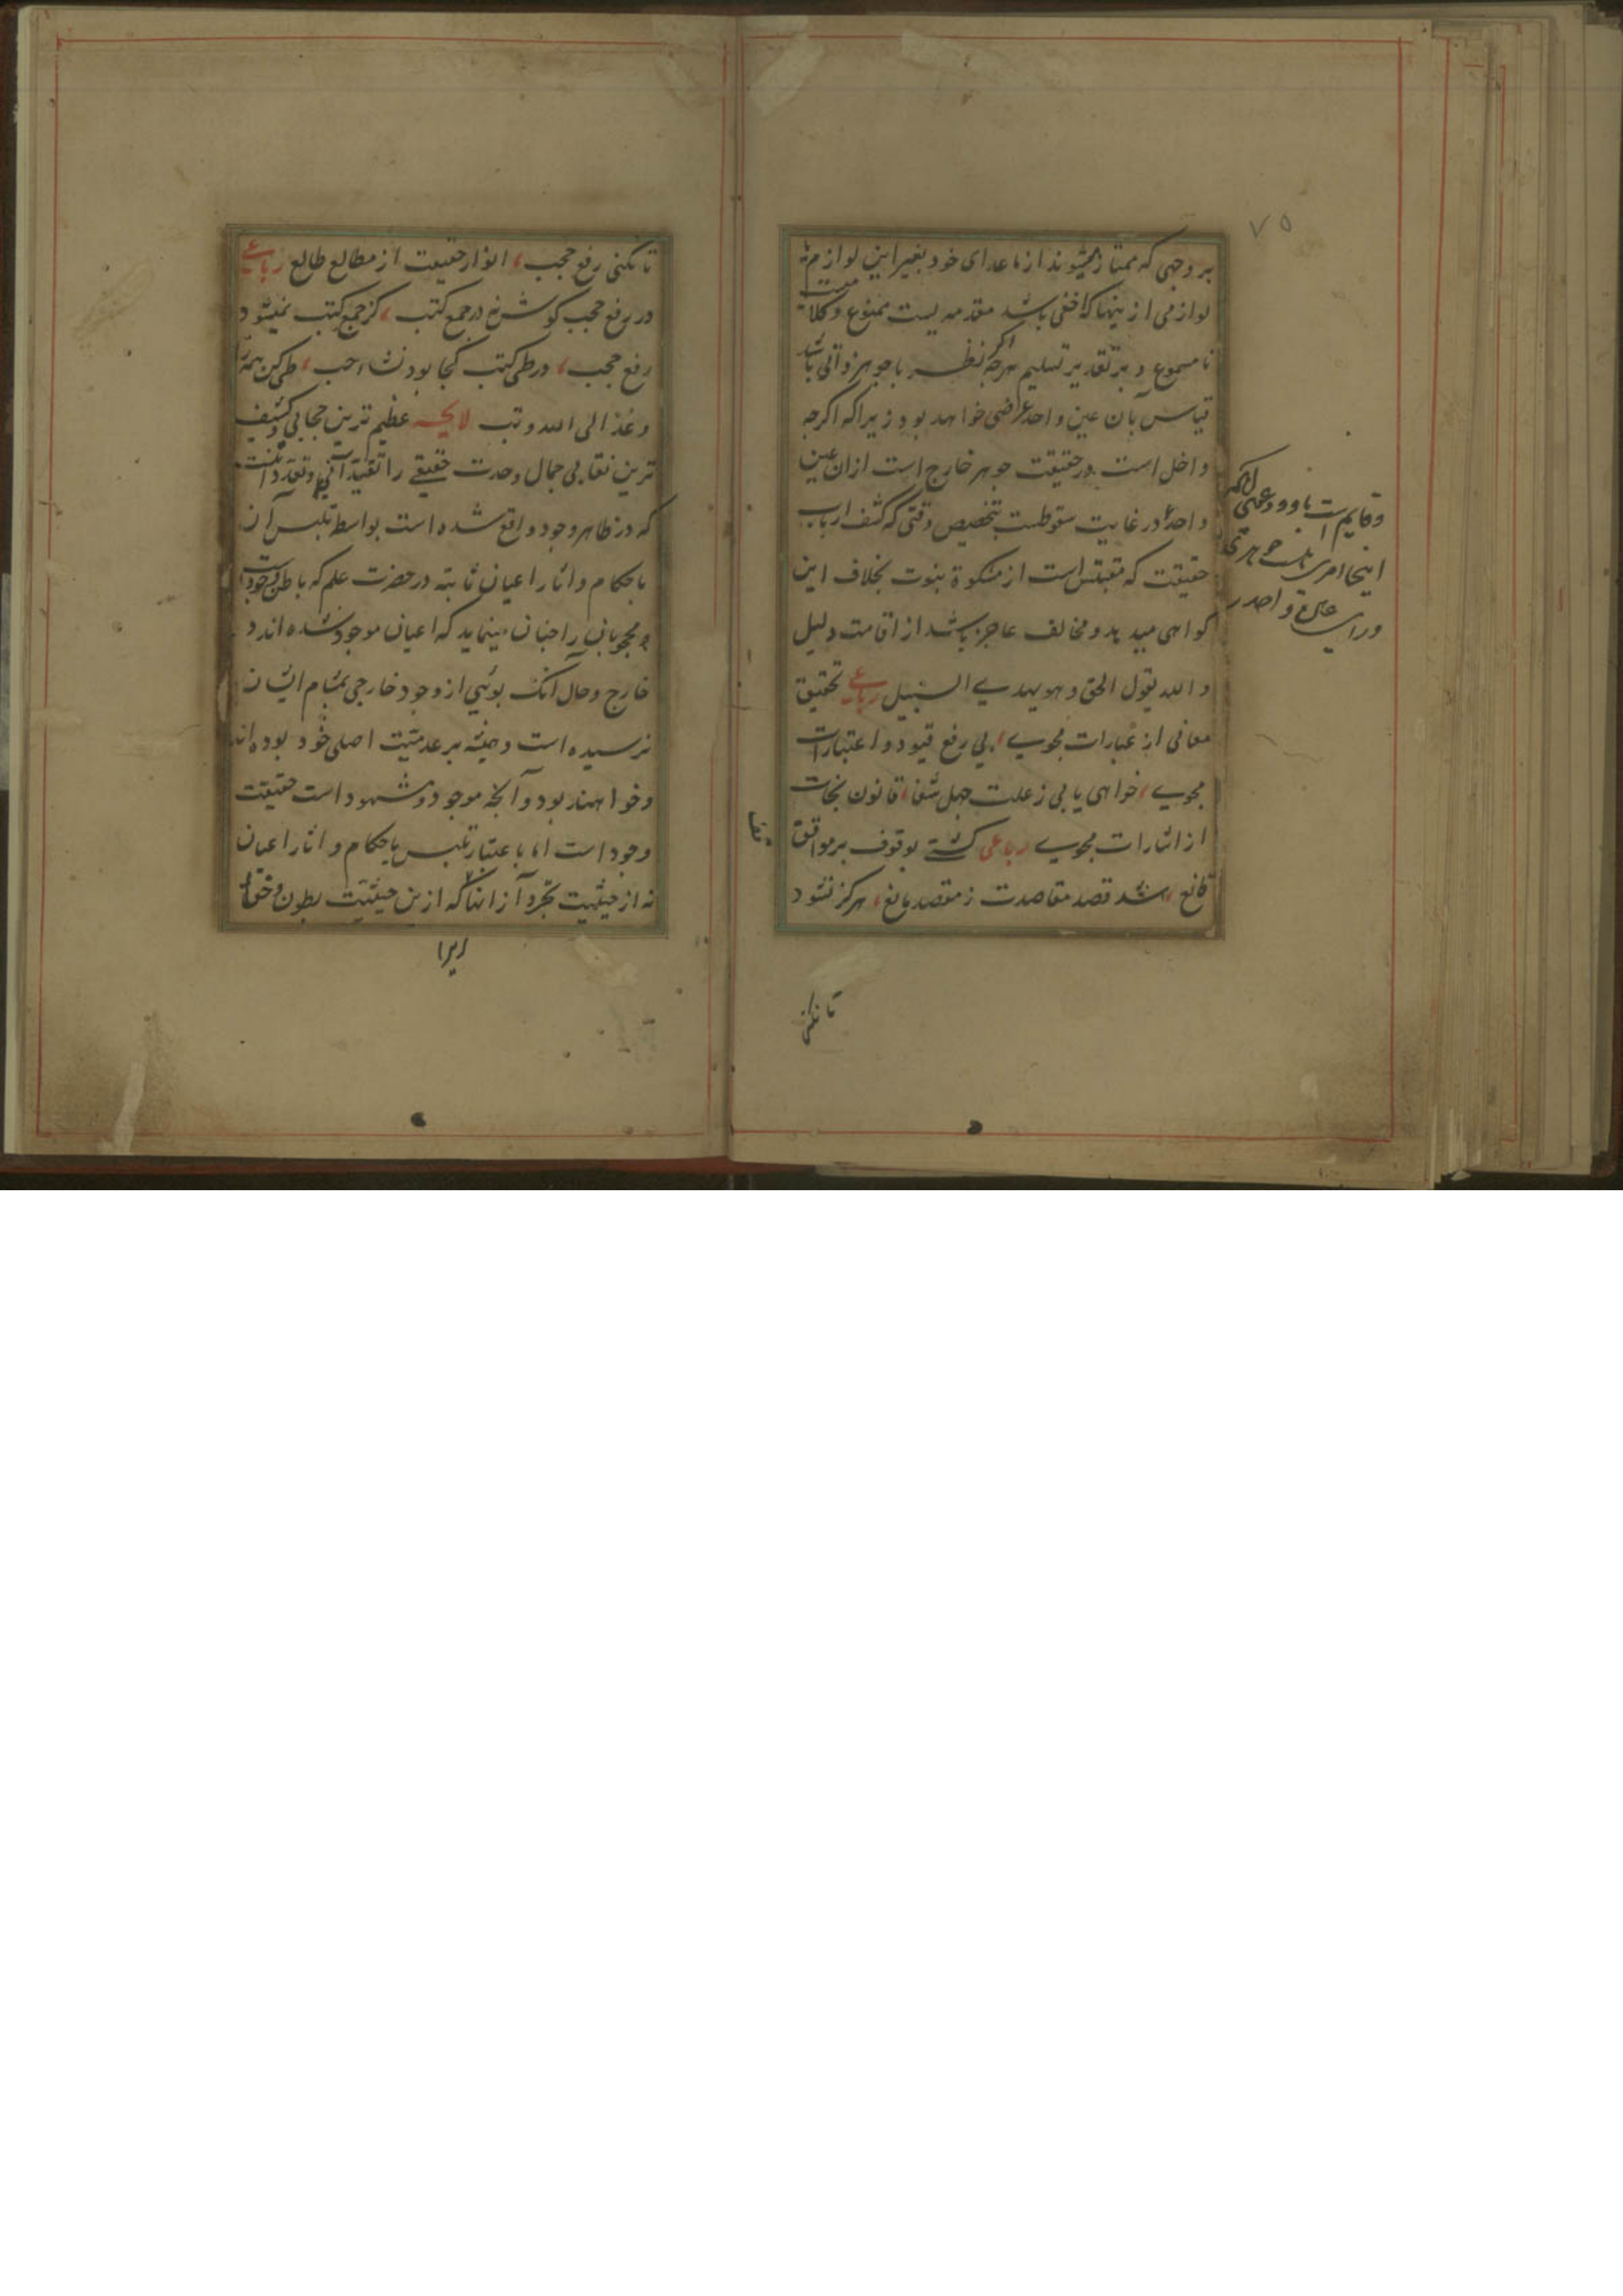 ۷۵
بر وجهی که ممتاز میشوند از ماعدای خود بغیر این لوازم نه
لوازمی از ینها که اخفی باشد مقدمه یست ممنوع و کلامیست
نا مسموع و بر تقدیر تسلیم هرچه نظر با جوهر ذاتی باشد
اکر
قیاس بآن عین واحد عرضی خواهد بود زیرا که اکرچه
داخل است در حقیقت جوهر خارج است ازان عین
واحد و در غایت سقوطست بتخصیص وقتی که کشف ارباب
حقیقت که مقتبس است از مشکوة نبوت بخلاف این
کواهی میدهد و مخالف عاجز باشد از اقامت دلیل
و الله یقول الحق و هو یهدی السبیل رباعی تحقیق
معانی از عبارات مجوی، بی رفع قیود و اعتبارات
مجوی، خواهی یابی ز علت جهل شفا، قانون نجات
از اشارات مجوی رباعی کشتی بوقوف بر مواقف
قانع، شد قصد مقاصدت ز مقصد مانع، هرکز نشود
تا نکنی
و قایم است باو
اینجا امری است جوهری
ورای عین واحد
تا نکنی رفع حجب، انوار حقیقت از مطالع طالع رباعی
در رفع حجب کوش نه در جمع کتب، کز جمع کتب نمیشود
رفع حجب، در طی کتب کجا بود نشاء حب، طی کن همه را
و عذ الی الله و تب لایحه عظیم ترین حجابی و کثیف
ترین نقابی جمال وحدت حقیقی را تقیداتی و تعدداتیست
که در ظاهر وجود واقع شده است بواسطه تلبس آن
باحکام و اثار اعیان ثابته در حضرت علم که باطن وجودست
و محجوبان را چنان مینماید که اعیان موجود شده اند در
خارج و حال آنک بویی از وجود خارجی بمشام ایشان
نرسیده است و همیشه بر عدمیت اصلی خود بوده اند
و خواهند بود و آنچه موجود و مشهود است حقیقت
وجود است اما باعتبار تلبس باحکام و اثار اعیان
نه از حیثیت تجرد از انها که ازین حیثیت بطون و خفا
زیرا